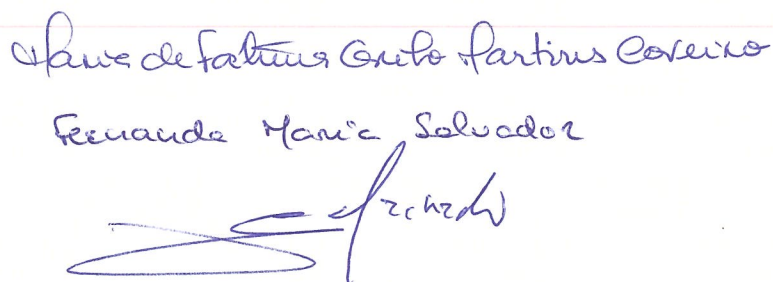 Maria de Fatima Grilo Martins Coveiro
Fernanda Maria Salvador